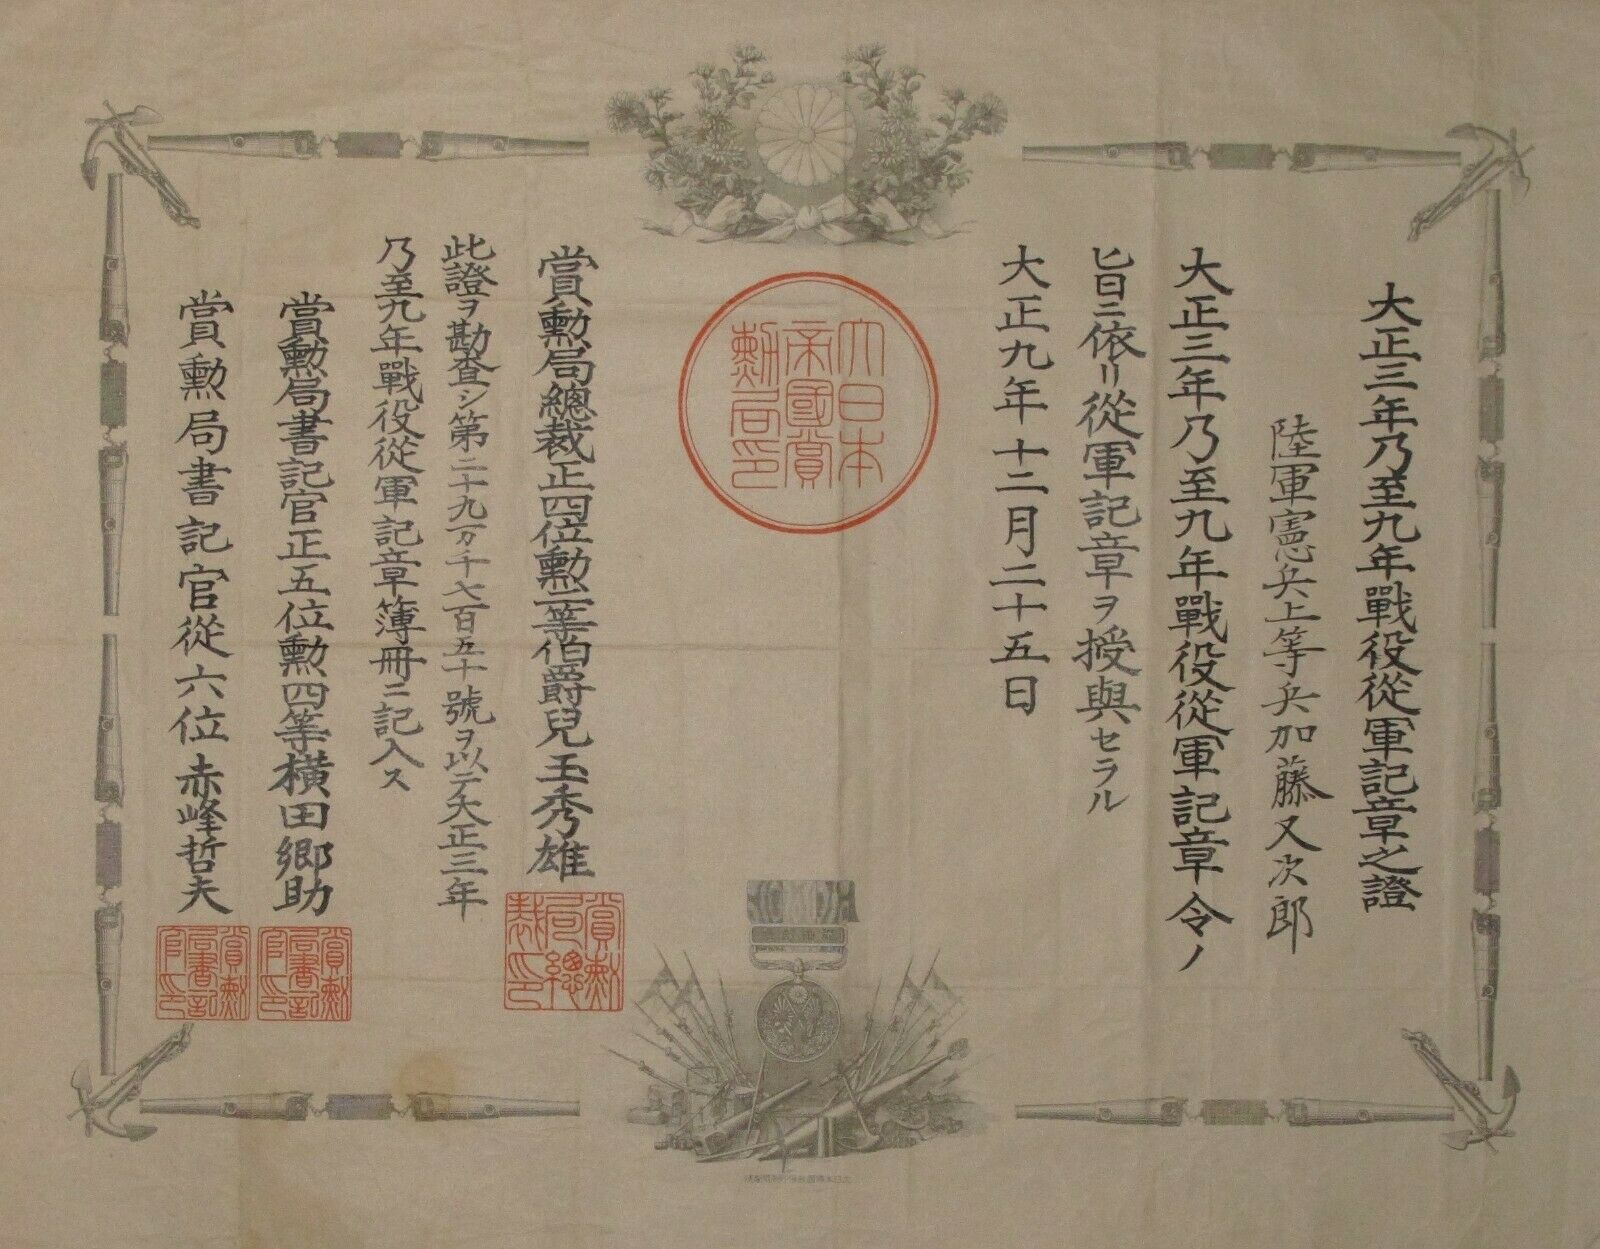 大正三年乃至九年戰役從軍記章之證
陸軍憲兵上等兵加藤又次郎
大正三年乃至九年戰役從軍記章令ノ
旨ニ依リ從軍記章ヲ授與セラル
大正九年十二月二十五日
大日本
帝國賞
勲局印
賞勲局總裁正四位勲二等伯爵兒玉秀雄
賞勲
局總
裁印
此證ヲ勘査シ第二十九万千七百五十號ヲ以テ大正三年
乃至九年戰役從軍記章簿冊ニ記入ス
賞勲局書記官正五位勲四等横田郷助
賞勲
局書記
官印
賞勲局書記官從六位赤峰哲夫
賞勲
局書記
官印